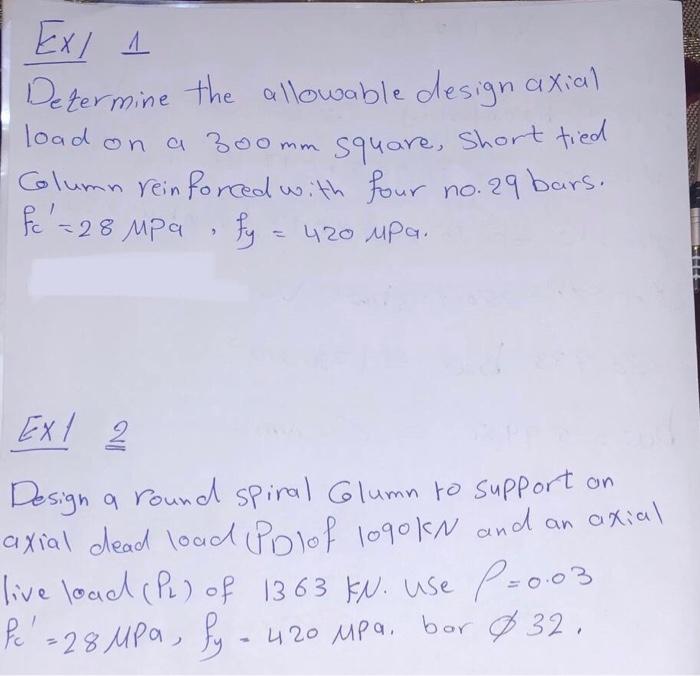 Ex/ 1
Determine the allowable design axial
load on a 300 mm square, Short tied
Column reinforced with four no. 29 bars.
fc' = 28 MPa , fy = 420 MPa.
Ex/ 2
Design a round spiral Column to support an
axial dead load (PD) of 1090 KN and an axial
live load (PL) of 1363 KN. Use ρ = 0.03
fc' = 28 MPa, fy = 420 MPa. bar Ø 32.